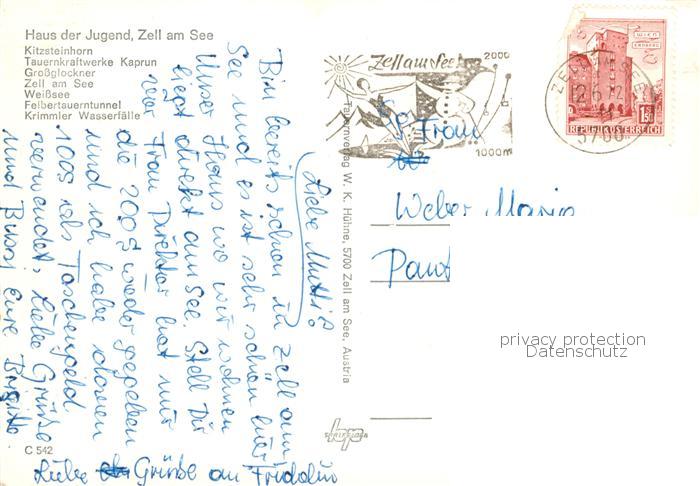 Haus der Jugend, Zell am See
Kitzsteinhorn
Tauernkraftwerke Kaprun
Großglockner
Zell am See
Weißsee
Felbertauerntunnel
Krimmler Wasserfälle
Liebe Mutti!
Bin bereits schon in Zell am
See und es ist sehr schön hier.
Unser Haus wo wir wohnen
liegt direkt am See. Stell Dir
vor Frau Direktor hat mir
die 200S wieder gegeben
und ich habe davon
100S als Taschengeld
verwendet. Liebe Grüße
und Bussi Eure Brigitte.
Liebe Grüße an Fridolin
C 542
Tauernverlag W. K. Hühne, 5700 Zell am See, Austria
Zell am See
2000
1000m
WIEN
ERDBERG
1.50
REPUBLIK ÖSTERREICH
ZELL AM SEE
5700
Frau
Weber Maria
privacy protection
Datenschutz